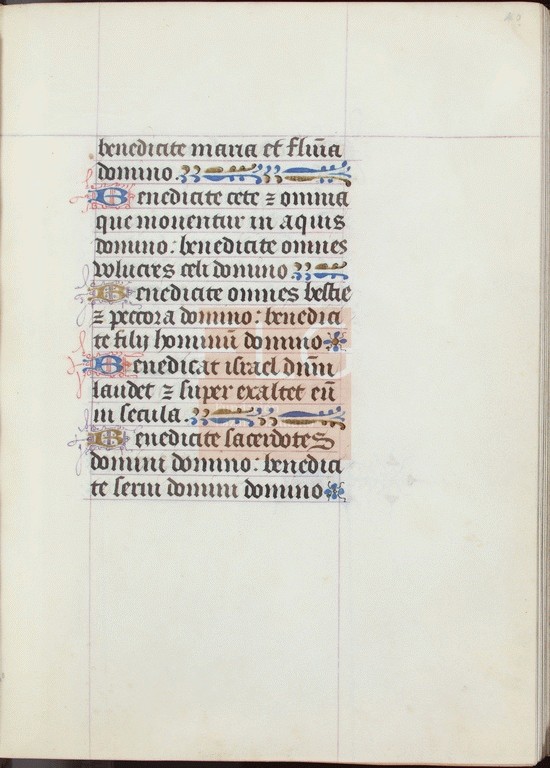 benedicite maria et flūīa
domino.
Benedicite cete ⁊ omnia
que mouentur in aquis
domino: benedicite omnes
volucres celi domino.
Benedicite omnes bestie
⁊ peccora domino: benedici
te filij hominū domino
Benedicat israel dn̄m
laudet ⁊ super exaltet eū
in secula.
Benedicite sacerdotes
domini domino: benedici
te serui domini domino